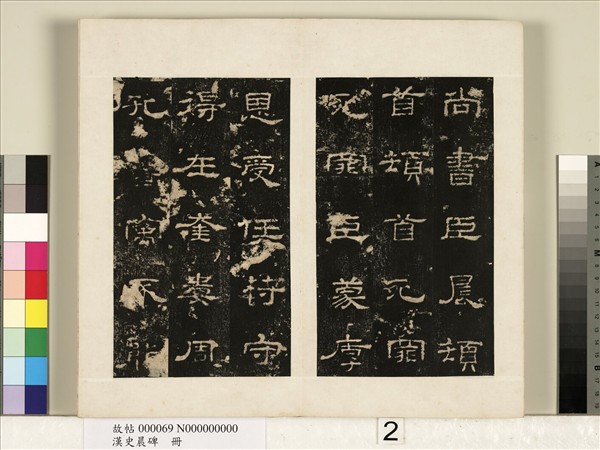 尚書臣晨頓
首頓首死罪
死罪臣蒙厚
恩受任符守
得在奎婁周
孔舊寓不能
故帖 000069 N000000000
漢史晨碑 冊
2